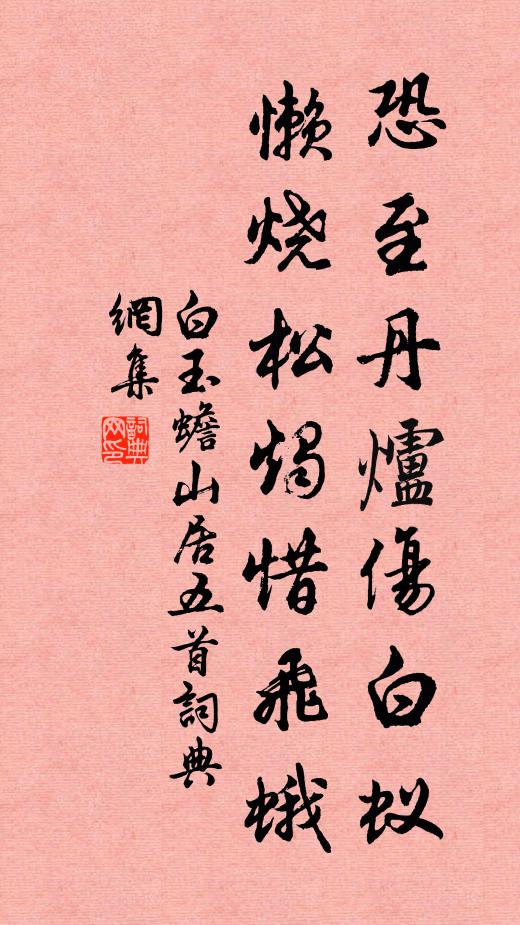 恐至丹爐傷白蚁
懒烧松燭惜飛蛾
白玉蟾山居五首詞典
網集
詞典
网印